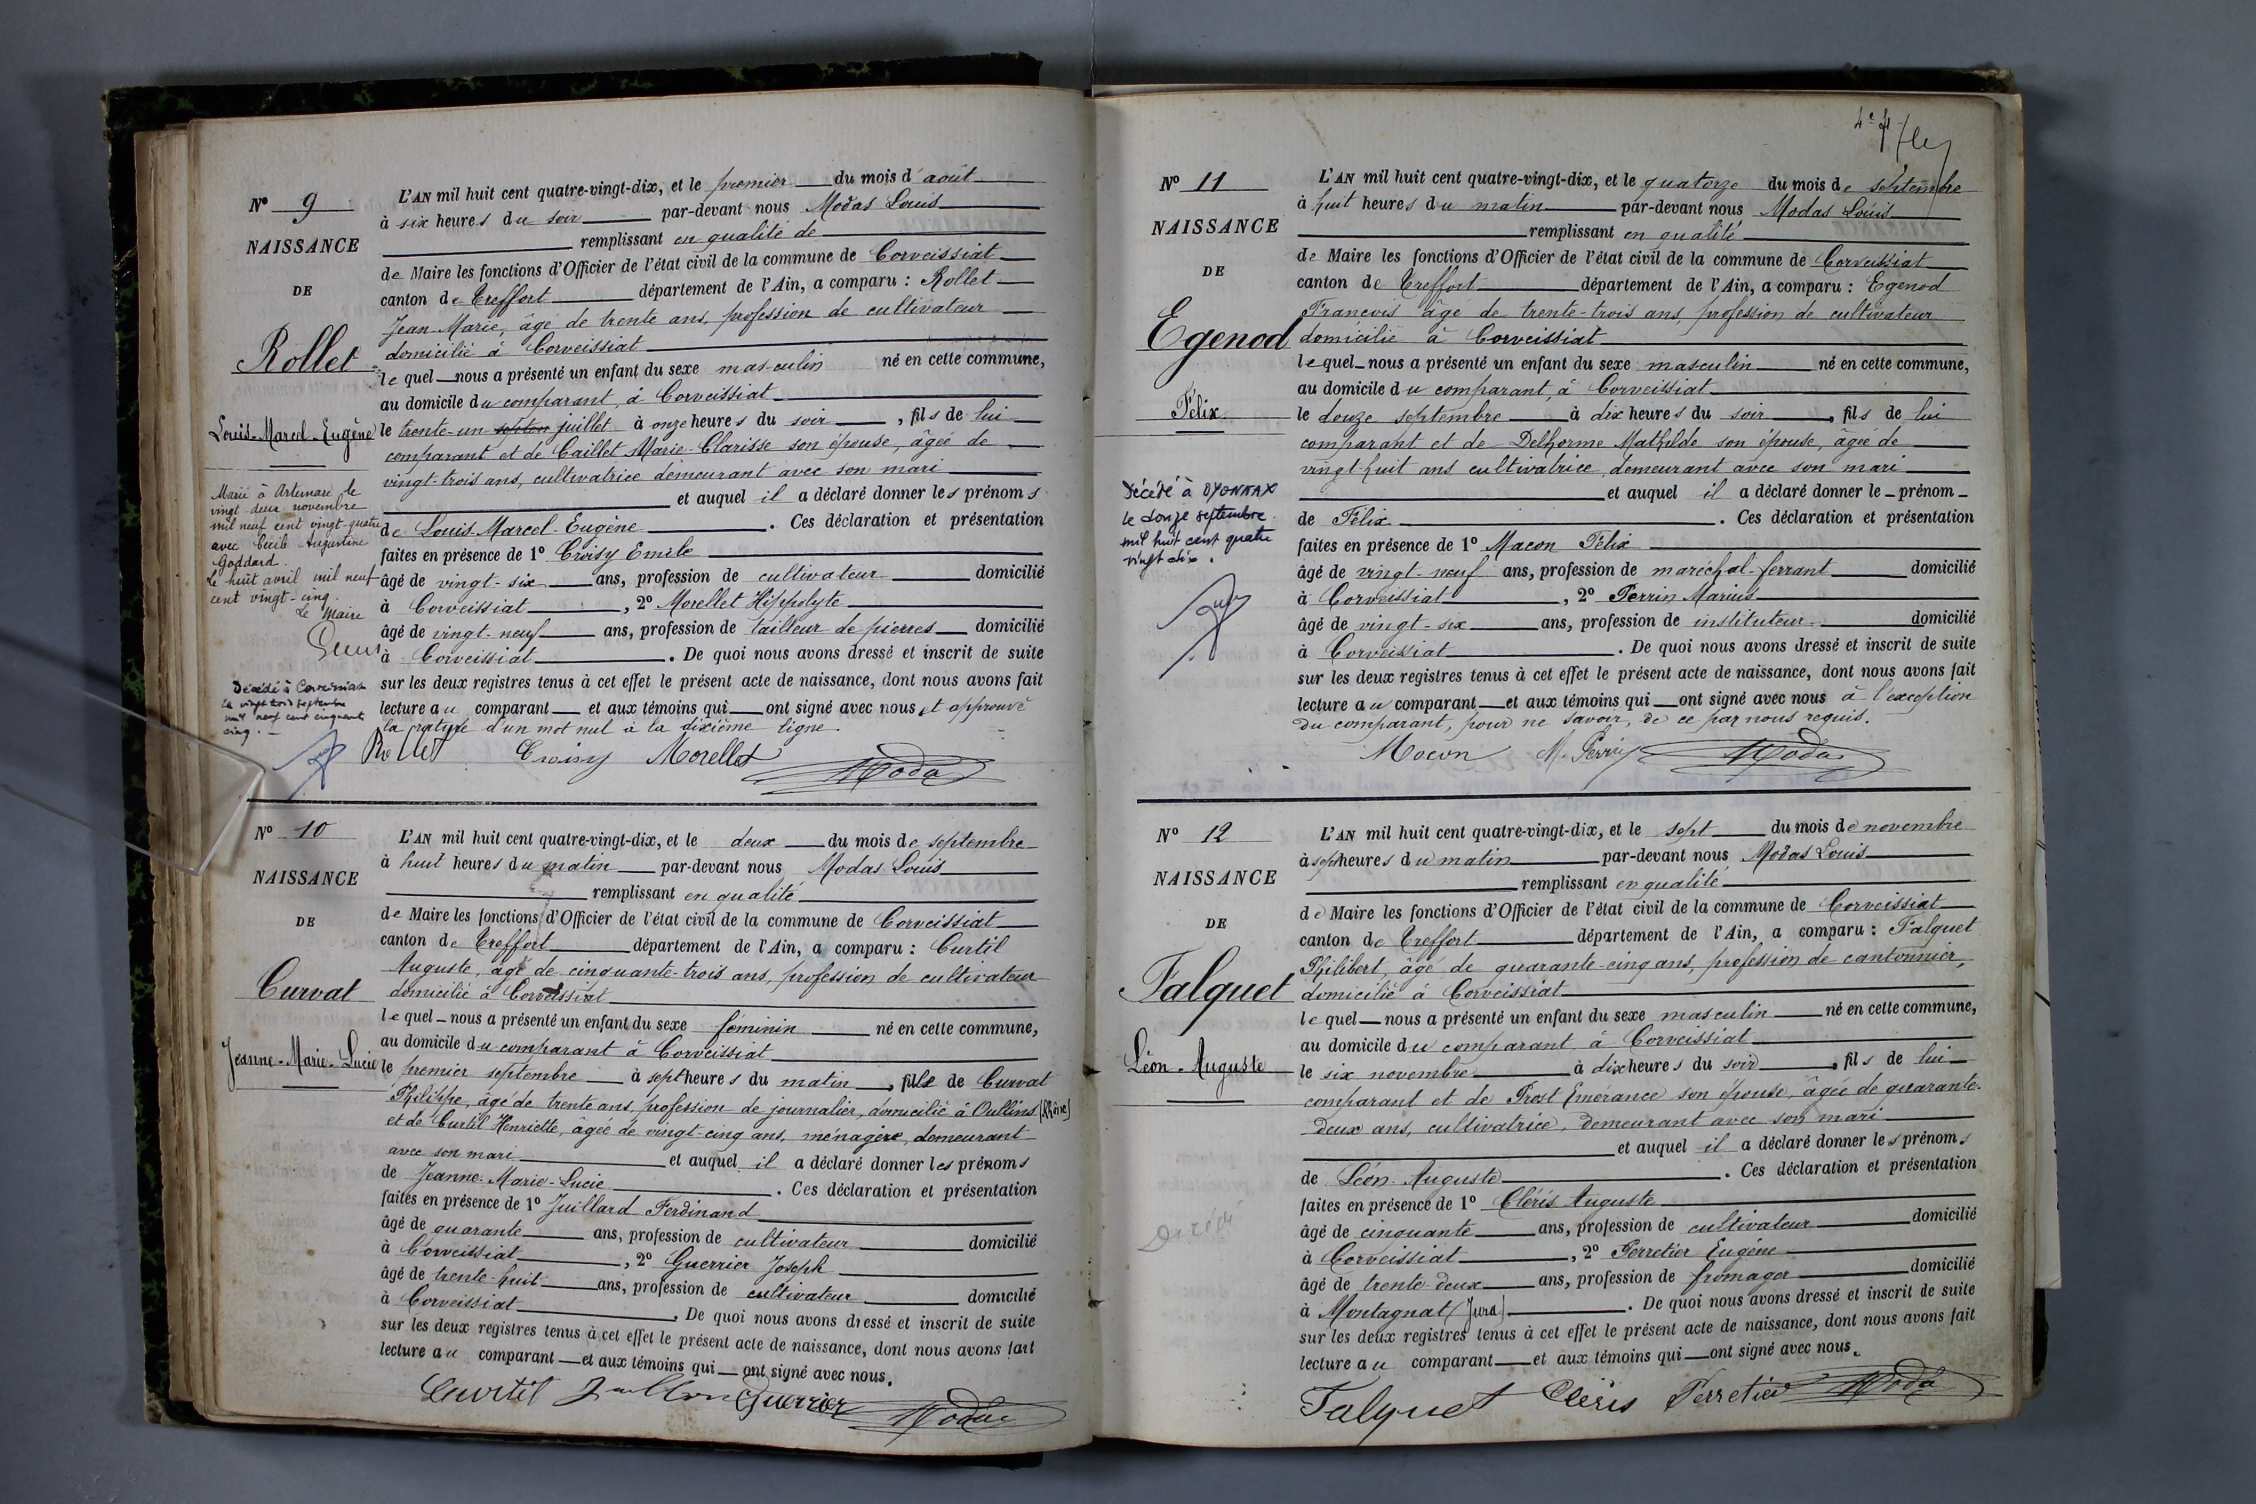 Nº 9
NAISSANCE
DE
Rollet
Louis-Marcel-Eugène
Marié à Artemare le
vingt-deux novembre
mil neuf cent vingt-quatre
avec Cécile Augustine
Goddard.
Le huit avril mil neuf
cent vingt-cinq.
Le Maire
Décédé à Corveissiat
le vingt trois septembre
mil neuf cent cinquante
cinq. -
L'AN mil huit cent quatre-vingt-dix, et le premier du mois d'août
à six heures du soir par-devant nous Modas Louis
remplissant en qualité de
de Maire les fonctions d'Officier de l'état civil de la commune de Corveissiat
canton de Treffort département de l'Ain, a comparu : Rollet
Jean-Marie, âgé de trente ans, profession de cultivateur
domicilié à Corveissiat
lequel nous a présenté un enfant du sexe masculin né en cette commune,
au domicile du comparant, à Corveissiat
le trente-un juillet à onze heures du soir, fils de lui
comparant et de Caillet Marie-Clarisse son épouse, âgée de
vingt-trois ans, cultivatrice demeurant avec son mari
et auquel il a déclaré donner les prénoms
de Louis-Marcel-Eugène. Ces déclaration et présentation
faites en présence de 1º Croisy Emile
âgé de vingt-six ans, profession de cultivateur domicilié
à Corveissiat, 2º Morellet Hippolyte
âgé de vingt-neuf ans, profession de tailleur de pierres domicilié
à Corveissiat. De quoi nous avons dressé et inscrit de suite
sur les deux registres tenus à cet effet le présent acte de naissance, dont nous avons fait
lecture au comparant et aux témoins qui ont signé avec nous et approuvé
la rature d'un mot nul à la dixième ligne.
Rollet Croisy Morellet Modas
Nº 10
NAISSANCE
DE
Curvat
Jeanne-Marie-Lucie
L'AN mil huit cent quatre-vingt-dix, et le deux du mois de septembre
à huit heures du matin par-devant nous Modas Louis
remplissant en qualité
de Maire les fonctions d'Officier de l'état civil de la commune de Corveissiat
canton de Treffort département de l'Ain, a comparu : Curtil
Auguste, âgé de cinquante-trois ans, profession de cultivateur
domicilié à Corveissiat
lequel nous a présenté un enfant du sexe féminin né en cette commune,
au domicile du comparant à Corveissiat
le premier septembre à sept heures du matin, fille de Curvat
Philippe, âgé de trente ans, profession de journalier, domicilié à Oullins (Rhône)
et de Curtil Henriette, âgée de vingt-cinq ans, ménagère, demeurant
avec son mari et auquel il a déclaré donner les prénoms
de Jeanne-Marie-Lucie. Ces déclaration et présentation
faites en présence de 1º Juillard Ferdinand
âgé de quarante ans, profession de cultivateur domicilié
à Corveissiat, 2º Guerrier Joseph
âgé de trente-huit ans, profession de cultivateur domicilié
à Corveissiat. De quoi nous avons dressé et inscrit de suite
sur les deux registres tenus à cet effet le présent acte de naissance, dont nous avons fait
lecture au comparant et aux témoins qui ont signé avec nous.
Curtil Juillard Guerrier Modas
Nº 11
NAISSANCE
DE
Egenod
Félix
Décédé à OYONNAX
le douze septembre
mil huit cent quatre
vingt dix.
L'AN mil huit cent quatre-vingt-dix, et le quatorze du mois de septembre
à huit heures du matin par-devant nous Modas Louis
remplissant en qualité
de Maire les fonctions d'Officier de l'état civil de la commune de Corveissiat
canton de Treffort département de l'Ain, a comparu : Egenod
François âgé de trente-trois ans, profession de cultivateur
domicilié à Corveissiat
lequel nous a présenté un enfant du sexe masculin né en cette commune,
au domicile du comparant, à Corveissiat
le douze septembre à dix heures du soir, fils de lui
comparant et de Delhorme Mathilde son épouse, âgée de
vingt-huit ans cultivatrice, demeurant avec son mari
et auquel il a déclaré donner le prénom
de Félix. Ces déclaration et présentation
faites en présence de 1º Macon Félix
âgé de vingt-neuf ans, profession de maréchal-ferrant domicilié
à Corveissiat, 2º Perrin Marius
âgé de vingt-six ans, profession de instituteur domicilié
à Corveissiat. De quoi nous avons dressé et inscrit de suite
sur les deux registres tenus à cet effet le présent acte de naissance, dont nous avons fait
lecture au comparant et aux témoins qui ont signé avec nous à l'exception
du comparant, pour ne savoir, de ce par nous requis.
Macon M. Perrin Modas
Nº 12
NAISSANCE
DE
Falquet
Léon-Auguste
Décédé
L'AN mil huit cent quatre-vingt-dix, et le sept du mois de novembre
à sept heures du matin par-devant nous Modas Louis
remplissant en qualité
de Maire les fonctions d'Officier de l'état civil de la commune de Corveissiat
canton de Treffort département de l'Ain, a comparu : Falquet
Philibert, âgé de quarante-cinq ans, profession de cantonnier,
domicilié à Corveissiat
lequel nous a présenté un enfant du sexe masculin né en cette commune,
au domicile du comparant à Corveissiat
le six novembre à dix heures du soir, fils de lui
comparant et de Prost Emérance son épouse, âgée de quarante-
deux ans, cultivatrice, demeurant avec son mari
et auquel il a déclaré donner les prénoms
de Léon-Auguste. Ces déclaration et présentation
faites en présence de 1º Cléris Auguste
âgé de cinquante ans, profession de cultivateur domicilié
à Corveissiat, 2º Perretier Eugène
âgé de trente-deux ans, profession de fromager domicilié
à Montagnat (Jura). De quoi nous avons dressé et inscrit de suite
sur les deux registres tenus à cet effet le présent acte de naissance, dont nous avons fait
lecture au comparant et aux témoins qui ont signé avec nous.
Falquet Cléris Perretier Modas